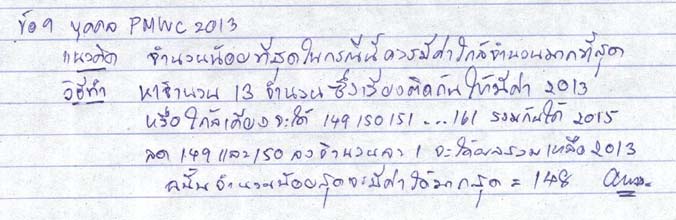 ข้อ 9 บุคคล PMWC 2013
แนวคิด จำนวนน้อยที่สุดในกรณีนี้ควรมีค่าใกล้จำนวนมากที่สุด
วิธีทำ หาจำนวน 13 จำนวน ซึ่งเรียงติดกันให้มีค่า 2013
หรือใกล้เคียงจะได้ 149 150 151 ... 161 รวมกันได้ 2015
ลด 149 และ 150 ลงจำนวนละ 1 จะได้ผลรวมเหลือ 2013
ดังนั้นจำนวนน้อยสุดจะมีค่าได้มากสุด = 148 ตอบ